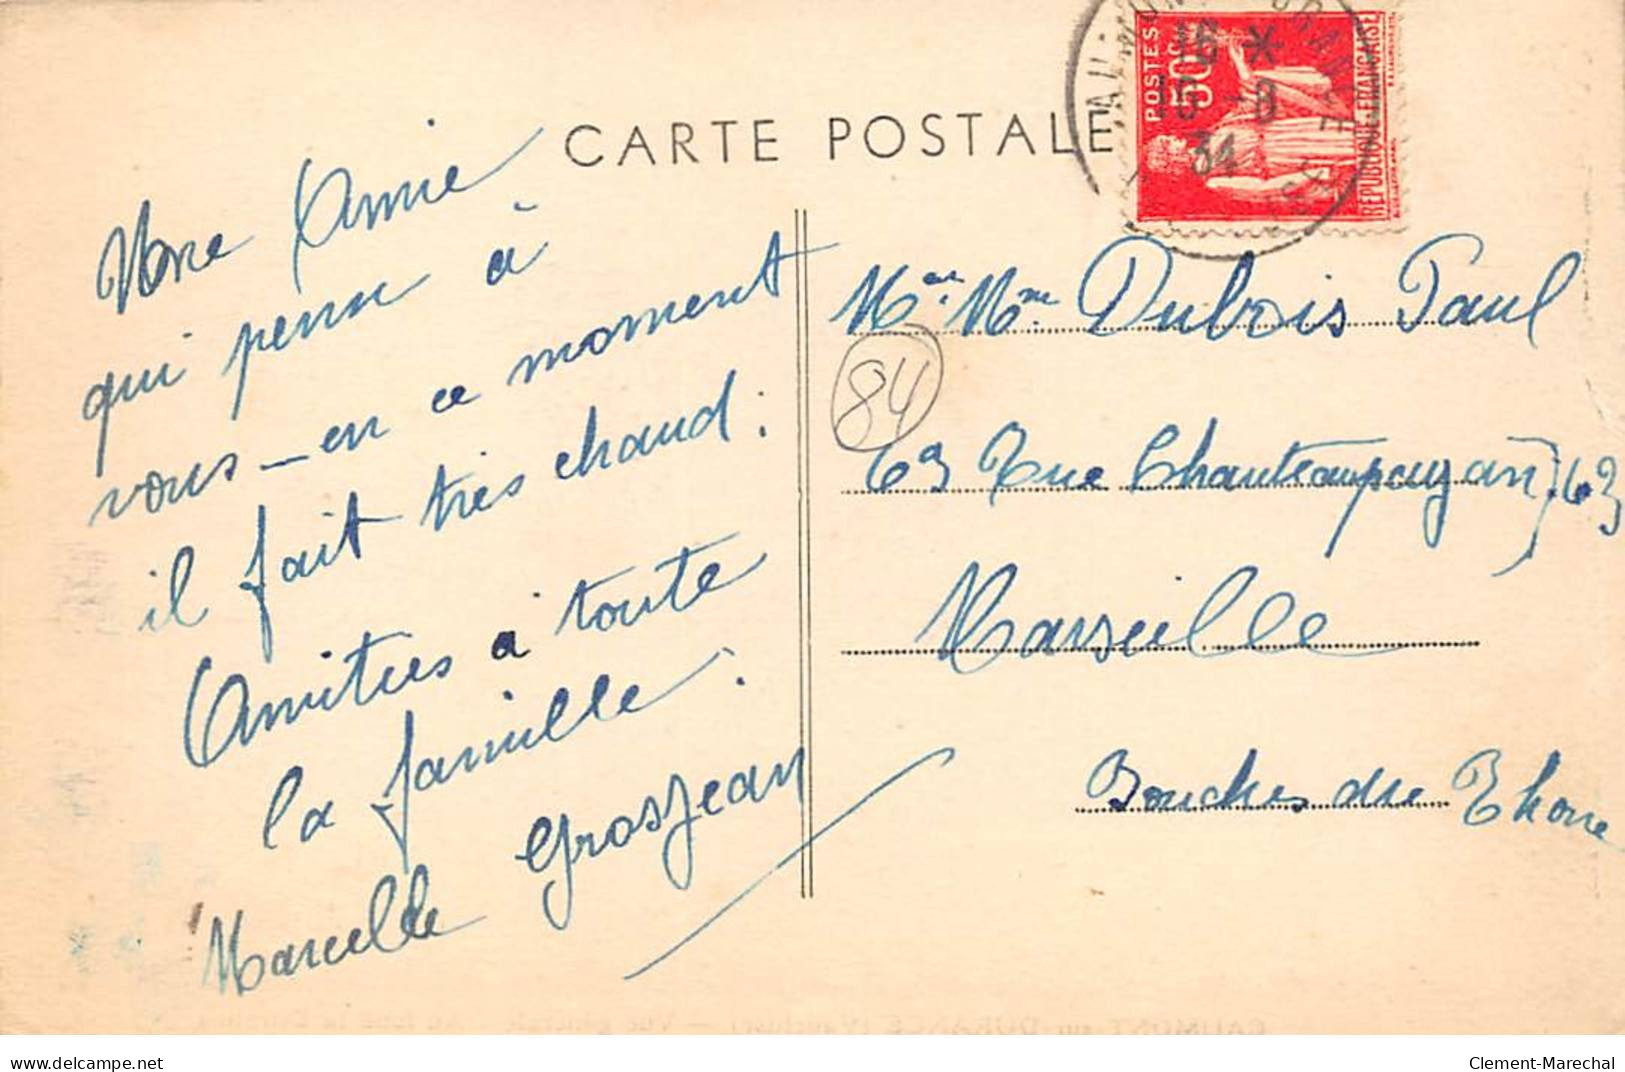 CARTE POSTALE
POSTES
50c
REPUBLIQUE-FRANÇAISE
16 *
-8
34
Une Amie
qui pense à
vous - en ce moment
il fait très chaud :
Amitiés à toute
la famille.
Marcelle Grosjean
Mr. Mme Dubois Paul
84
63 Rue Chanteaupuyan, 63
Marseille
Bouches du Rhone
www.delcampe.net
Clement-Marechal